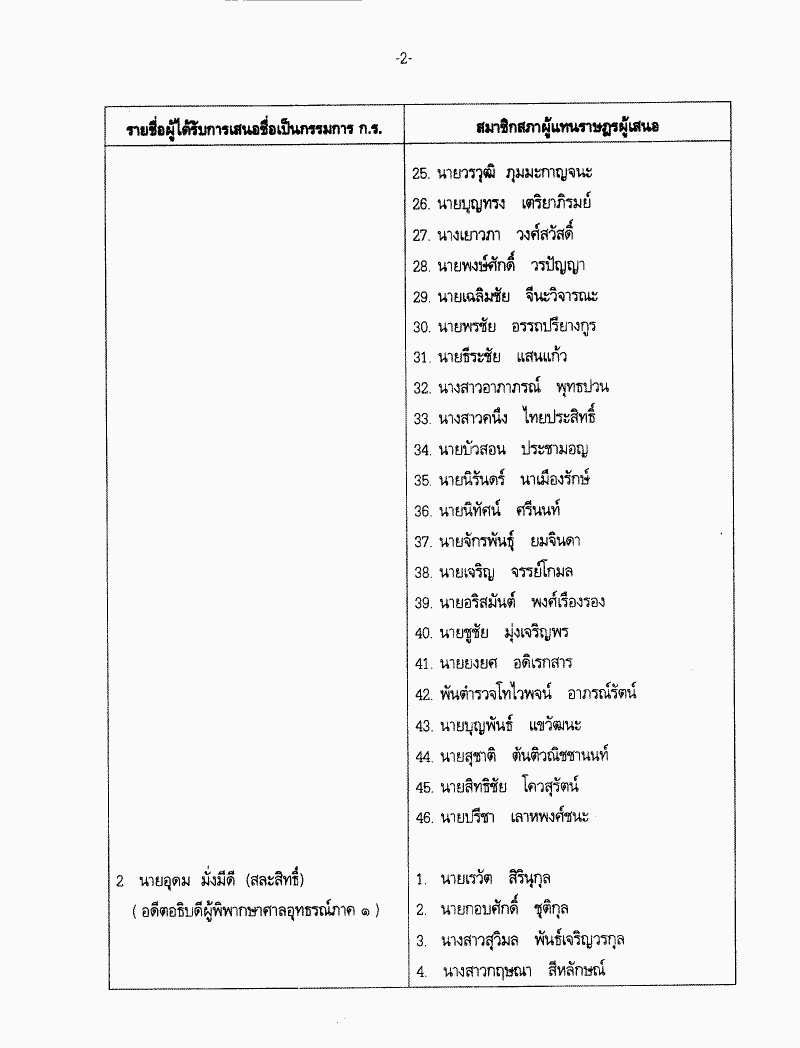 -2-
รายชื่อผู้ได้รับการเสนอชื่อเป็นกรรมการ ก.ร.
สมาชิกสภาผู้แทนราษฎรผู้เสนอ
25. นายวรวุฒิ ภุมมะกาญจนะ
26. นายบุญทรง เตริยาภิรมย์
27. นางเยาวภา วงศ์สวัสดิ์
28. นายพงษ์ศักดิ์ วรปัญญา
29. นายเฉลิมชัย จีนะวิจารณะ
30. นายพรชัย อรรถปรียางกูร
31. นายธีระชัย แสนแก้ว
32. นางสาวอาภาภรณ์ พุทธปวน
33. นางสาวคนึง ไทยประสิทธิ์
34. นายบัวสอน ประชามอญ
35. นายนิรันดร์ นาเมืองรักษ์
36. นายนิทัศน์ ศรีนนท์
37. นายจักรพันธุ์ ยมจินดา
38. นายเจริญ จรรย์โกมล
39. นายอริสมันต์ พงศ์เรืองรอง
40. นายชูชัย มุ่งเจริญพร
41. นายยงยศ อดิเรกสาร
42. พันตำรวจโทไวพจน์ อาภรณ์รัตน์
43. นายบุญพันธ์ แขวัฒนะ
44. นายสุชาติ ตันติวณิชชานนท์
45. นายสิทธิชัย โควสุรัตน์
46. นายปรีชา เลาหพงศ์ชนะ
2 นายอุดม มั่งมีดี (สละสิทธิ์)
( อดีตอธิบดีผู้พิพากษาศาลอุทธรณ์ภาค ๑ )
1. นายเรวัต สิรินุกุล
2. นายกอบศักดิ์ ชุติกุล
3. นางสาวสุวิมล พันธ์เจริญวรกุล
4. นางสาวกฤษณา สีหลักษณ์